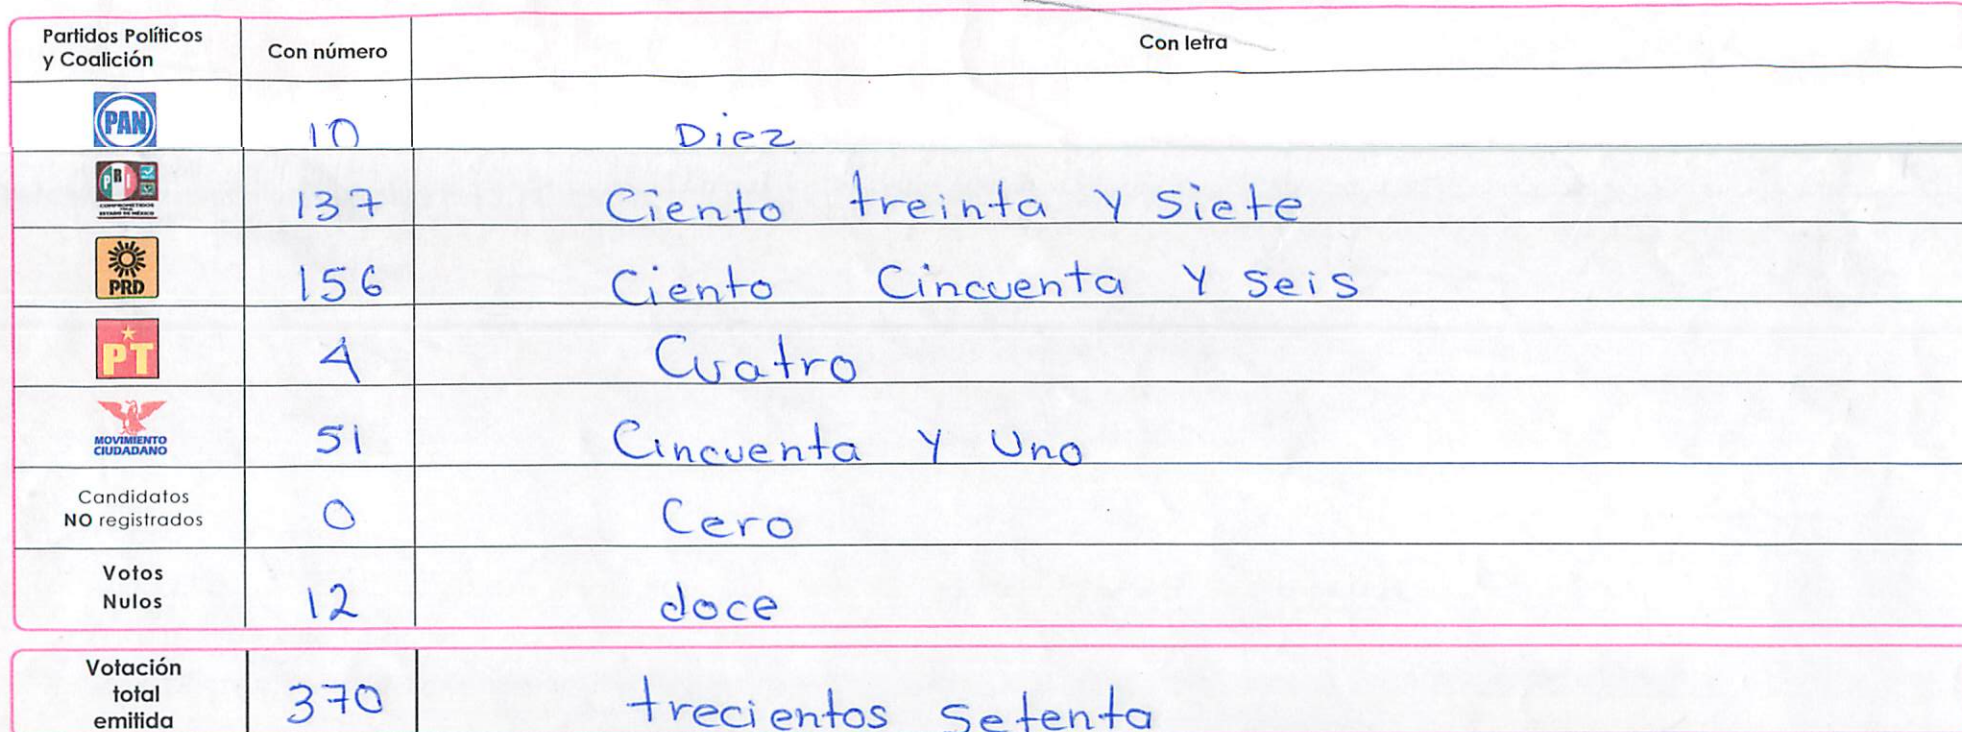 Partidos Políticos y Coalición Con número Con letra
PAN 10 Diez
PRI 137 Ciento treinta y Siete
PRD 156 Ciento Cincuenta Y Seis
PT 4 Cuatro
MOVIMIENTO CIUDADANO 51 Cincuenta Y Uno
Candidatos NO registrados 0 Cero
Votos Nulos 12 doce
Votación total emitida 370 trecientos Setenta